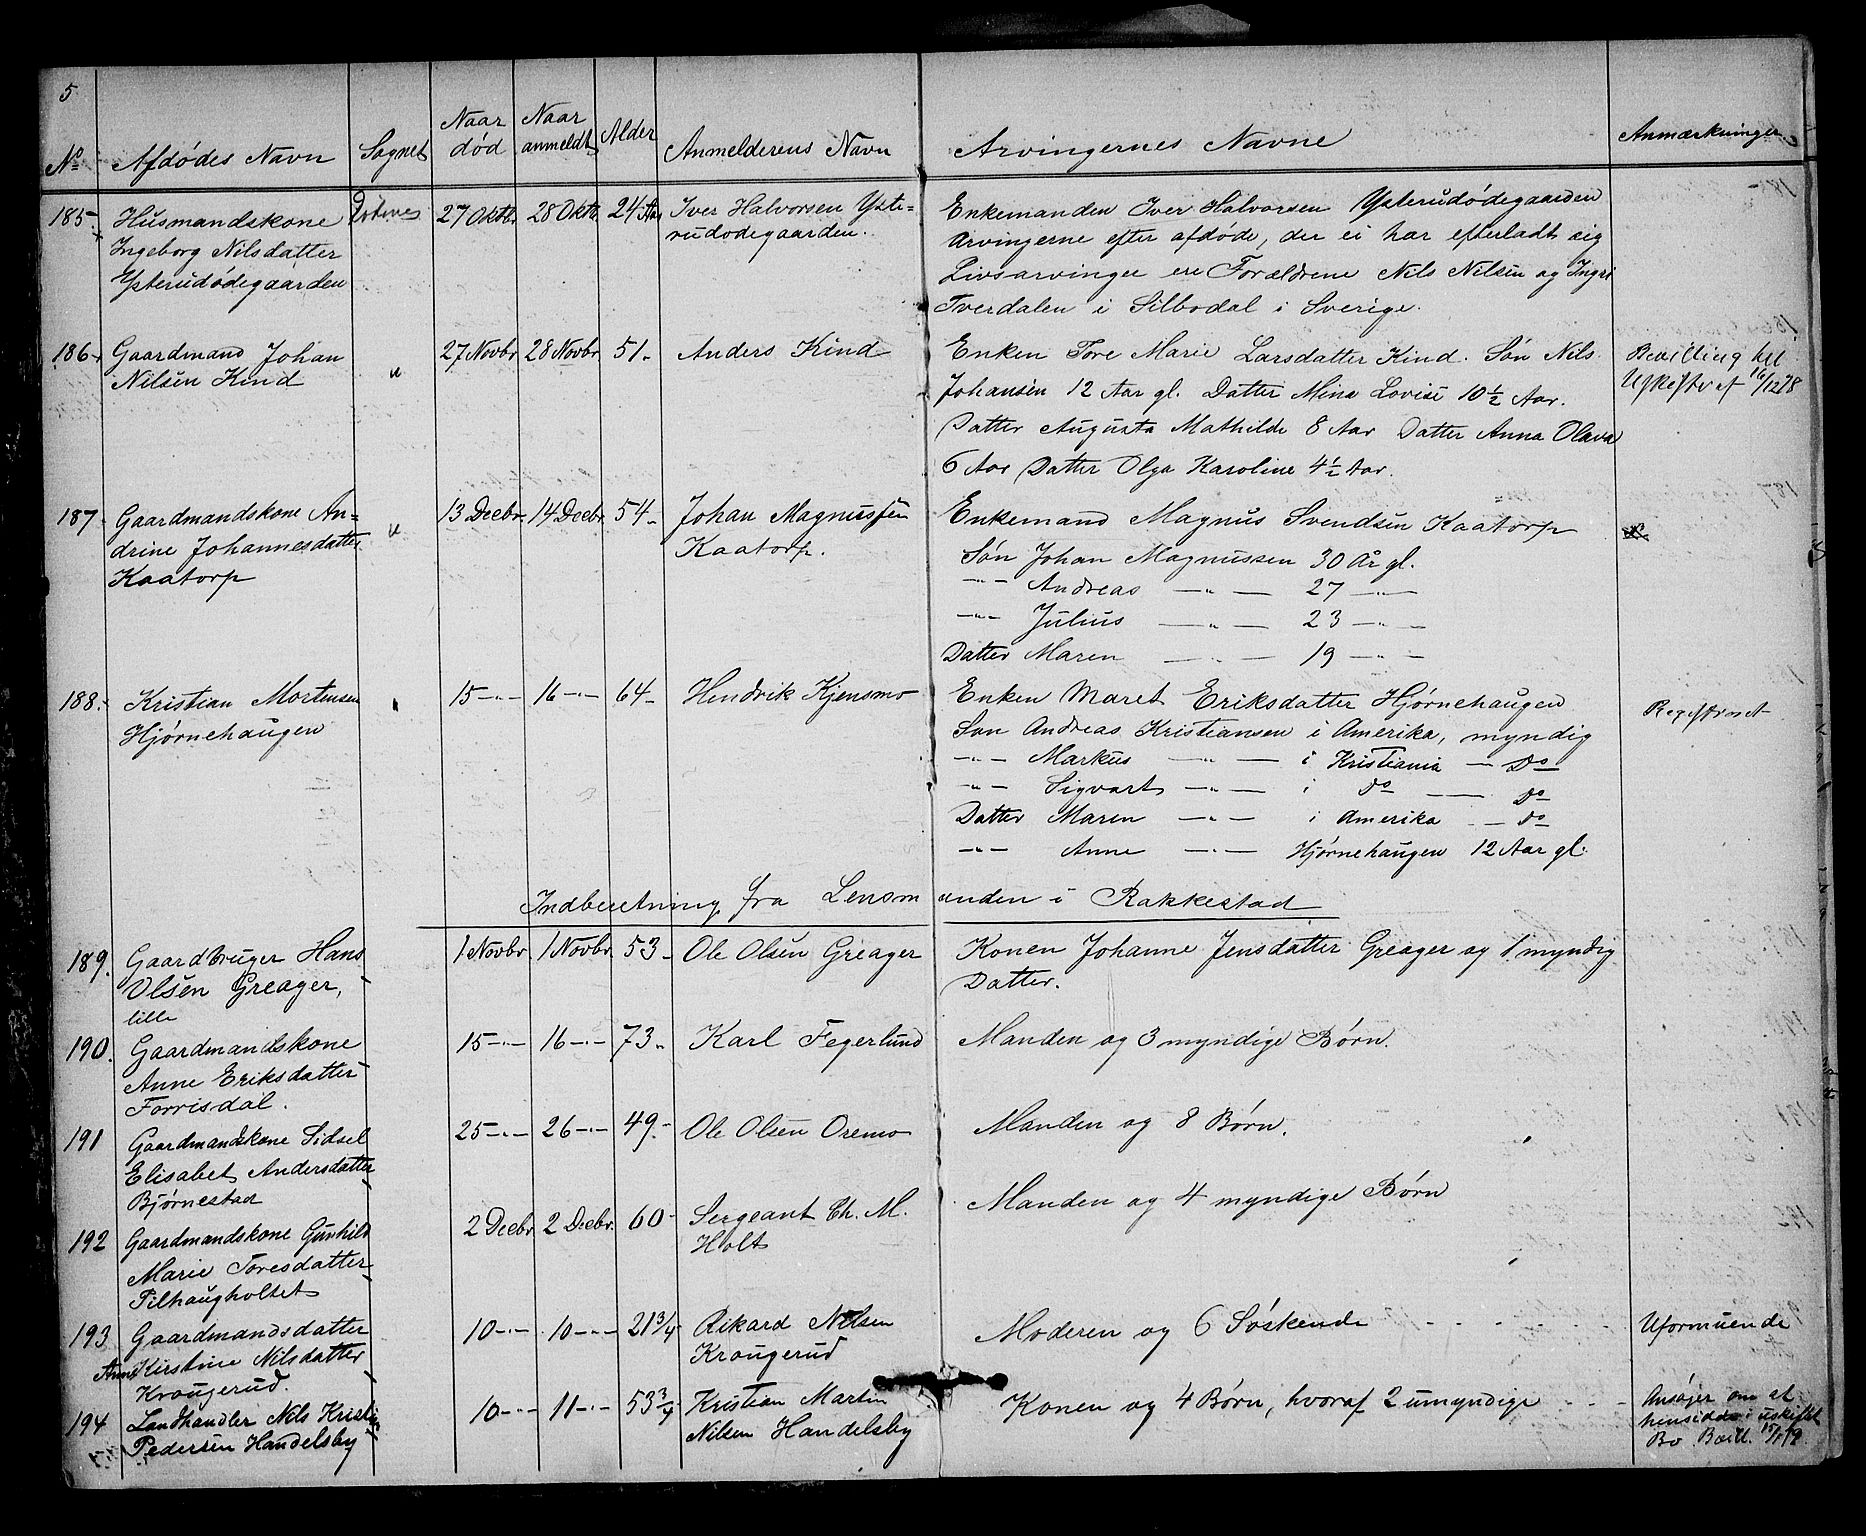 5
No Afdødes Navn Sognet Naar død Naar anmeldt Alder Anmelderens Navn Arvingernes Navne Anmærkninger
185 Husmandskone 27 Oktb. 28 Oktb. 24 Aar Iver Halvorsen Yste= Enkemanden Iver Halvorsen Ysterudødegaarden
Ingeborg Nilsdatter rudødegaarden. Arvingerne efter afdøde, der ei har efterladt sig
Ysterudødegaarden Livsarvinger ere Forældrene Nils Nilsen og Ingri
Tverdalen i Silbodal i Sverige.
186 Gaardmand Johan " 27 Novbr 28 Novbr. 51. Anders Kind Enken Tore Marie Larsdatter Kind. Søn Nils Bevilling til
Nilsen Kind Johansen 12 Aar gl. Datter Mina Lovise 10½ Aar. 16/12 78
Datter Augusta Mathilde 8 Aar Datter Anna Olava
6 Aar Datter Olga Karoline 4½ Aar.
187 Gaardmandskone An= " 13 Decbr. 14 Decbr. 54. Johan Magnussen Enkemand Magnus Svendsen Kaatorp
drine Johannesdatter Kaatorp. Søn Johan Magnussen 30 År gl.
Kaatorp -"- Andreas -"- 27 -"-
-"- Julius -"- 23 -"-
Datter Maren -"- 19 -"-
188. Kristian Mortensen " 15 -"- 16 -"- 64. Hendrik Kjensmo Enken Maret Eriksdatter Hjørnehaugen Registreret
Hjørnehaugen Søn Andreas Kristiansen i Amerika, myndig
-"- Markus -"- i Kristiania - Do
-"- Sigvart -"- i Do - Do
Datter Maren -"- i Amerika - Do
-"- Anne -"- Hjørnehaugen 12 Aar gl.
Indberetning fra Lensmanden i Rakkestad
189. Gaardbruger Hans 1 Novbr 1 Novbr. 53. Ole Olsen Greager Konen Johanne Jensdatter Greager og 1 myndig
Olsen Greager, Datter.
lille
190. Gaardmandskone 15 -"- 16 -"- 73. Karl Fegerlund Manden og 3 myndige Børn.
Anne Eriksdatter
Forrisdal.
191 Gaardmandskone Sidsel 25 -"- 26 -"- 49. Ole Olsen Oremo Manden og 8 Børn.
Elisabet Andersdatter
Bjørnestad
192 Gaardmandskone Gunhild 2 Decbr. 2 Decbr. 60 Sergeant Ch. M. Manden og 4 myndige Børn
Marie Toresdatter Holt
Pilhaugholtet
193 Gaardmandsdatter 10 -"- 10 -"- 21¾ Rikard Nilsen Moderen og 6 Søskende Uformuende
Anne Kirstine Nilsdatter Kraugerud
Kraugerud.
194 Landhandler Nils Kristian 10 -"- 11 -"- 53¾ Kristian Martin Konen og 4 Børn, hvoraf 2 umyndige Ansøger om at
Pedersen Handelsby Nilsen Handelsby hensidde i uskiftet
Bo Bevill. 15/1 79.